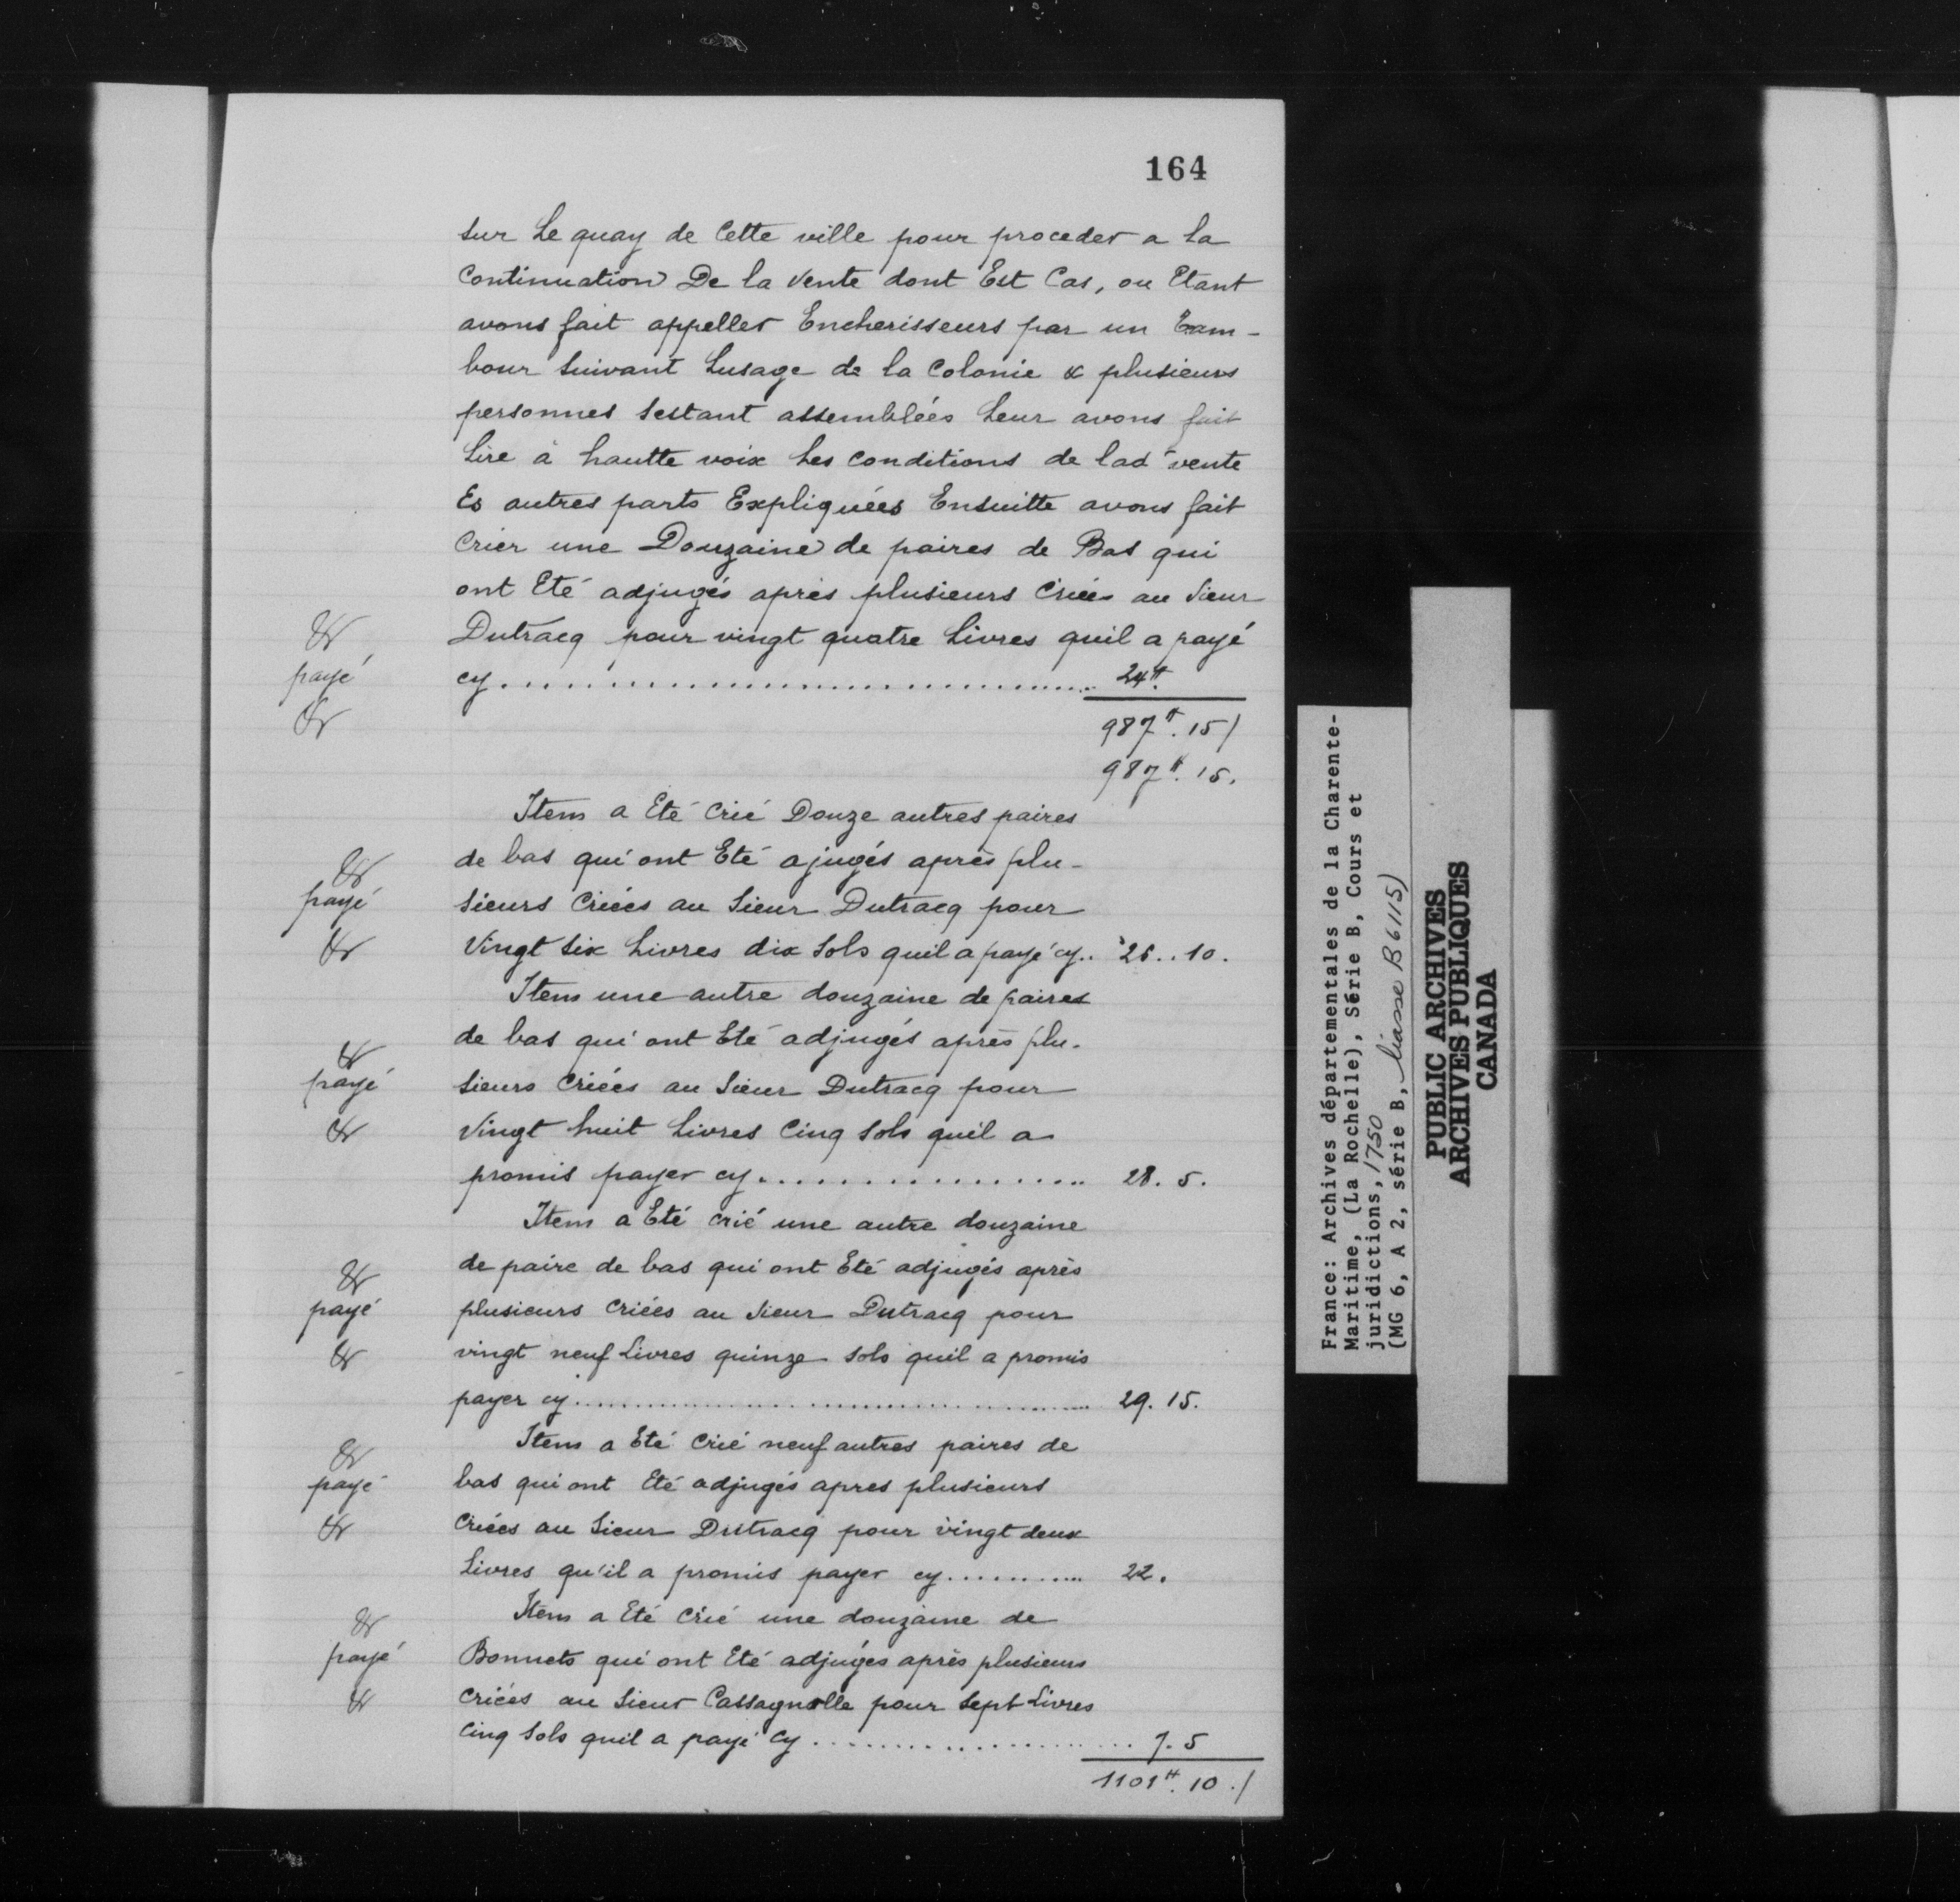 164
sur Le quay de Cette ville pour proceder a la
Continuation De la Vente dont Est Cas, ou Etant
avons fait appeller Encherisseurs par un Tam-
bour suivant Lusage de la Colonie & plusieurs
personnes sestant assemblées Leur avons fait
Lire à hautte voix Les conditions de lad vente
Es autres parts Expliquées Ensuitte avons fait
Crier une Douzaine de paires de Bas qui
ont Eté adjugés après plusieurs Criées au Sieur
Dutracq pour vingt quatre Livres quil a payé
payé cy........................ 24#
987#. 15/
987#. 15.
Item a Eté Crié Douze autres paires
de bas qui ont Eté ajugés après plu-
payé sieurs Criées au Sieur Dutracq pour
Vingt Six Livres dix Sols quil a payé cy.. 26..10.
Item une autre douzaine de paires
de bas qui ont Eté adjugés après plu-
payé sieurs Criées au Sieur Dutracq pour
Vingt huit Livres Cinq Sols quil a
promis payer cy................ 28. 5.
Item a Eté crié une autre douzaine
de paire de bas qui ont Eté adjugés après
payé plusieurs Criées au Sieur Dutracq pour
vingt neuf Livres quinze sols quil a promis
payer cy........................ 29. 15.
Item a Eté Crié neuf autres paires de
payé bas qui ont Eté adjugés apres plusieurs
Criées au Sieur Dutracq pour vingt deux
Livres qu'il a promis payer cy........... 22.
Item a Eté Crié une douzaine de
payé Bonnets qui ont Eté adjugés après plusieurs
Criées au Sieur Cassagnolle pour Sept Livres
Cinq Sols quil a payé Cy................ 7. 5
1101#. 10./
France: Archives départementales de la Charente-
Maritime, (La Rochelle), Série B, Cours et
juridictions, 1750
(MG 6, A 2, série B, liasse B 6115)
PUBLIC ARCHIVES
ARCHIVES PUBLIQUES
CANADA